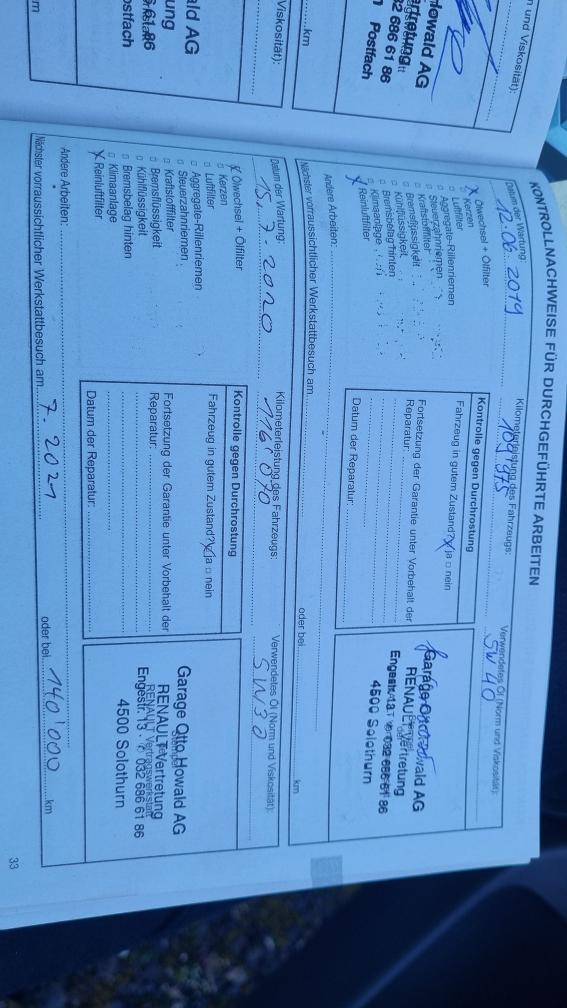 n und Viskosität):
Howald AG
92 686 61 86
Postfach
km
Viskosität):
ald AG
Postfach
KONTROLLNACHWEISE FÜR DURCHGEFÜHRTE ARBEITEN
Datum der Wartung: 12.06.2019
Kilometerleistung des Fahrzeugs: 109'975
Verwendetes Öl (Norm und Viskosität): 5W40
X Ölwechsel + Ölfilter
□ Kerzen
□ Luftfilter
□ Aggregate-Rillenriemen
□ Steuerzahnriemen
□ Kraftstofffilter
□ Bremsflüssigkeit
□ Kühlflüssigkeit
□ Bremsbelag hinten
□ Klimaanlage
X Reinluftfilter
Kontrolle gegen Durchrostung
Fahrzeug in gutem Zustand? X ja □ nein
Fortsetzung der Garantie unter Vorbehalt der
Reparatur:
Datum der Reparatur:
Garage Otto Howald AG
RENAULT Vertretung
Engestr. 13 · ✆ 032 686 61 86
4500 Solothurn
Andere Arbeiten:
Nächster vorraussichtlicher Werkstattbesuch am
oder bei
km
Datum der Wartung: 15.7.2020
Kilometerleistung des Fahrzeugs: 116'070
Verwendetes Öl (Norm und Viskosität): 5W30
X Ölwechsel + Ölfilter
□ Kerzen
□ Luftfilter
□ Aggregate-Rillenriemen
□ Steuerzahnriemen
□ Kraftstofffilter
□ Bremsflüssigkeit
□ Kühlflüssigkeit
□ Bremsbelag hinten
□ Klimaanlage
X Reinluftfilter
Kontrolle gegen Durchrostung
Fahrzeug in gutem Zustand? X ja □ nein
Fortsetzung der Garantie unter Vorbehalt der
Reparatur:
Datum der Reparatur:
Garage Otto Howald AG
RENAULT Vertretung
RENAULT Vertragswerkstatt
Engestr. 13 · ✆ 032 686 61 86
4500 Solothurn
Andere Arbeiten:
Nächster vorraussichtlicher Werkstattbesuch am 7.2021 oder bei 140'000 km
33